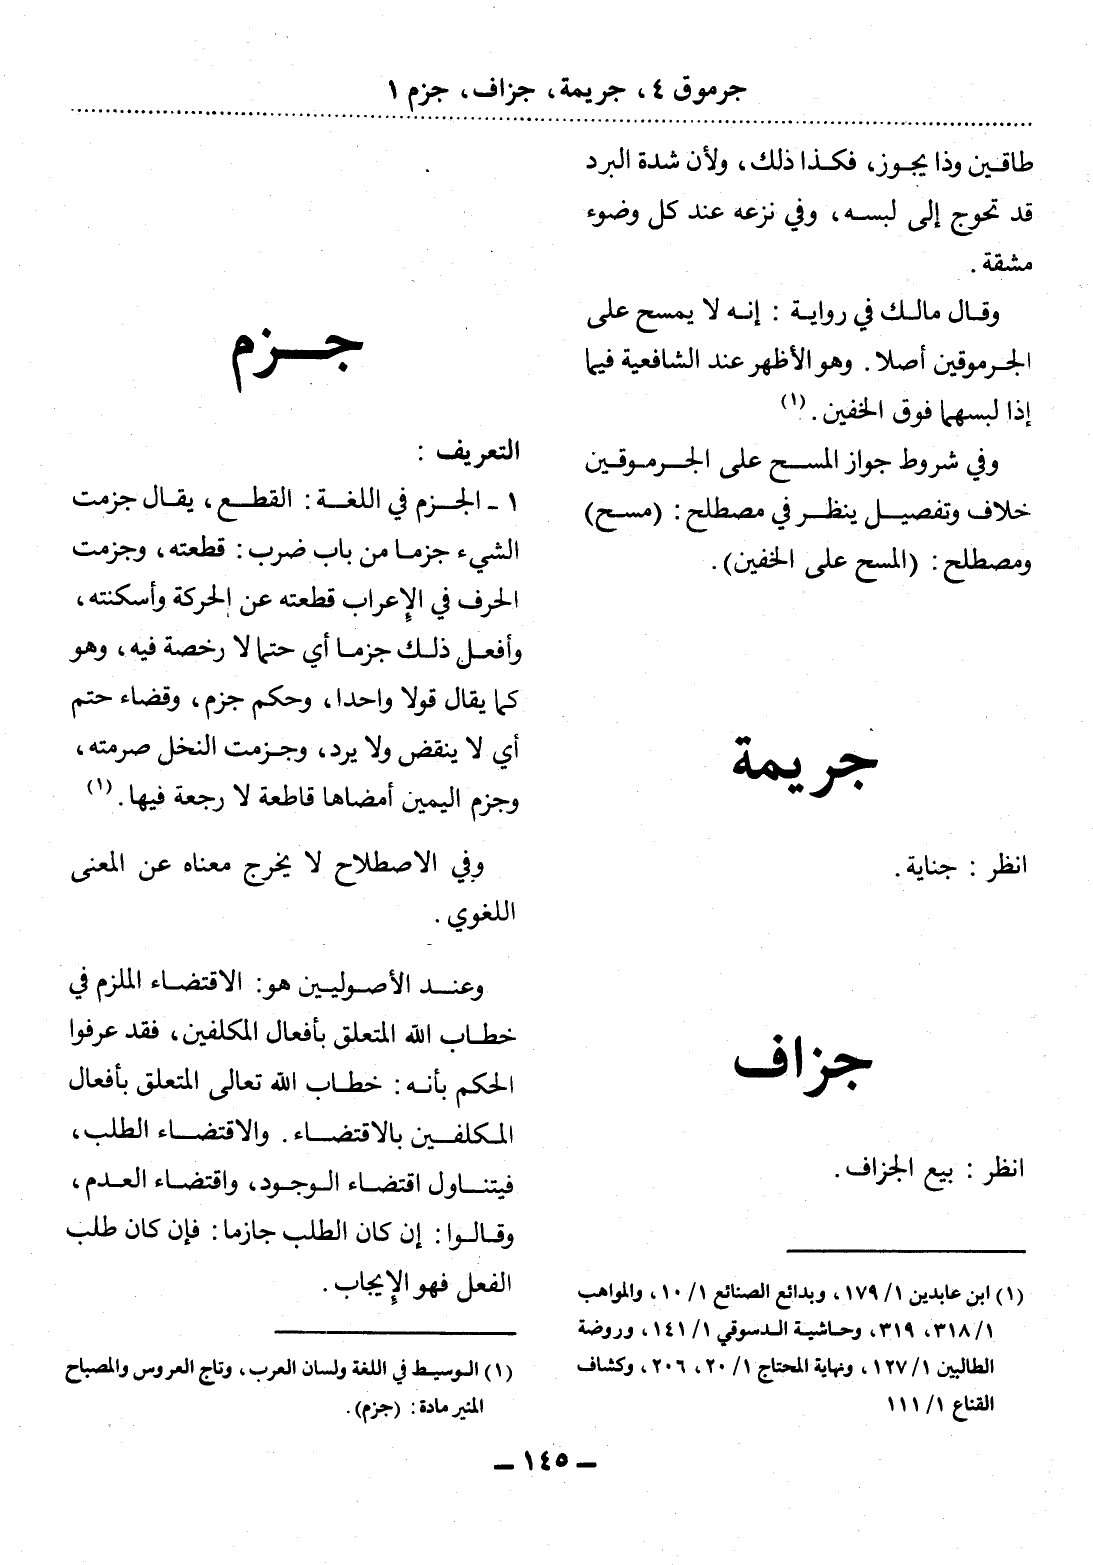 جرموق ٤، جريمة، جزاف، جزم ١
طاقين وذا يجوز، فكذا ذلك، ولأن شدة البرد
قد تحوج إلى لبسه، وفي نزعه عند كل وضوء
مشقة.
وقال مالك في رواية : إنه لا يمسح على
الجرموقين أصلا. وهو الأظهر عند الشافعية فيما
إذا لبسهما فوق الخفين.(١)
وفي شروط جواز المسح على الجرموقين
خلاف وتفصيل ينظر في مصطلح: (مسح)
ومصطلح: (المسح على الخفين).
جريمة
انظر : جناية.
جزاف
انظر : بيع الجزاف.
(١) ابن عابدين ١/ ١٧٩، وبدائع الصنائع ١/ ١٠، والمواهب
١/ ٣١٨، ٣١٩، وحاشية الدسوقي ١/ ١٤١، وروضة
الطالبين ١/ ١٢٧، ونهاية المحتاج ١/ ٢٠، ٢٠٦، وكشاف
القناع ١/ ١١١
جزم
التعريف :
١ - الجزم في اللغة: القطع، يقال جزمت
الشيء جزما من باب ضرب: قطعته، وجزمت
الحرف في الإعراب قطعته عن الحركة وأسكنته،
وأفعل ذلك جزما أي حتما لا رخصة فيه، وهو
كما يقال قولا واحدا، وحكم جزم، وقضاء حتم
أي لا ينقض ولا يرد، وجزمت النخل صرمته،
وجزم اليمين أمضاها قاطعة لا رجعة فيها.(١)
وفي الاصطلاح لا يخرج معناه عن المعنى
اللغوي.
وعند الأصوليين هو: الاقتضاء الملزم في
خطاب الله المتعلق بأفعال المكلفين، فقد عرفوا
الحكم بأنه: خطاب الله تعالى المتعلق بأفعال
المكلفين بالاقتضاء. والاقتضاء الطلب،
فيتناول اقتضاء الوجود، واقتضاء العدم،
وقالوا: إن كان الطلب جازما: فإن كان طلب
الفعل فهو الإيجاب.
(١) الوسيط في اللغة ولسان العرب، وتاج العروس والمصباح
المنير مادة: (جزم).
ـ ١٤٥ ـ